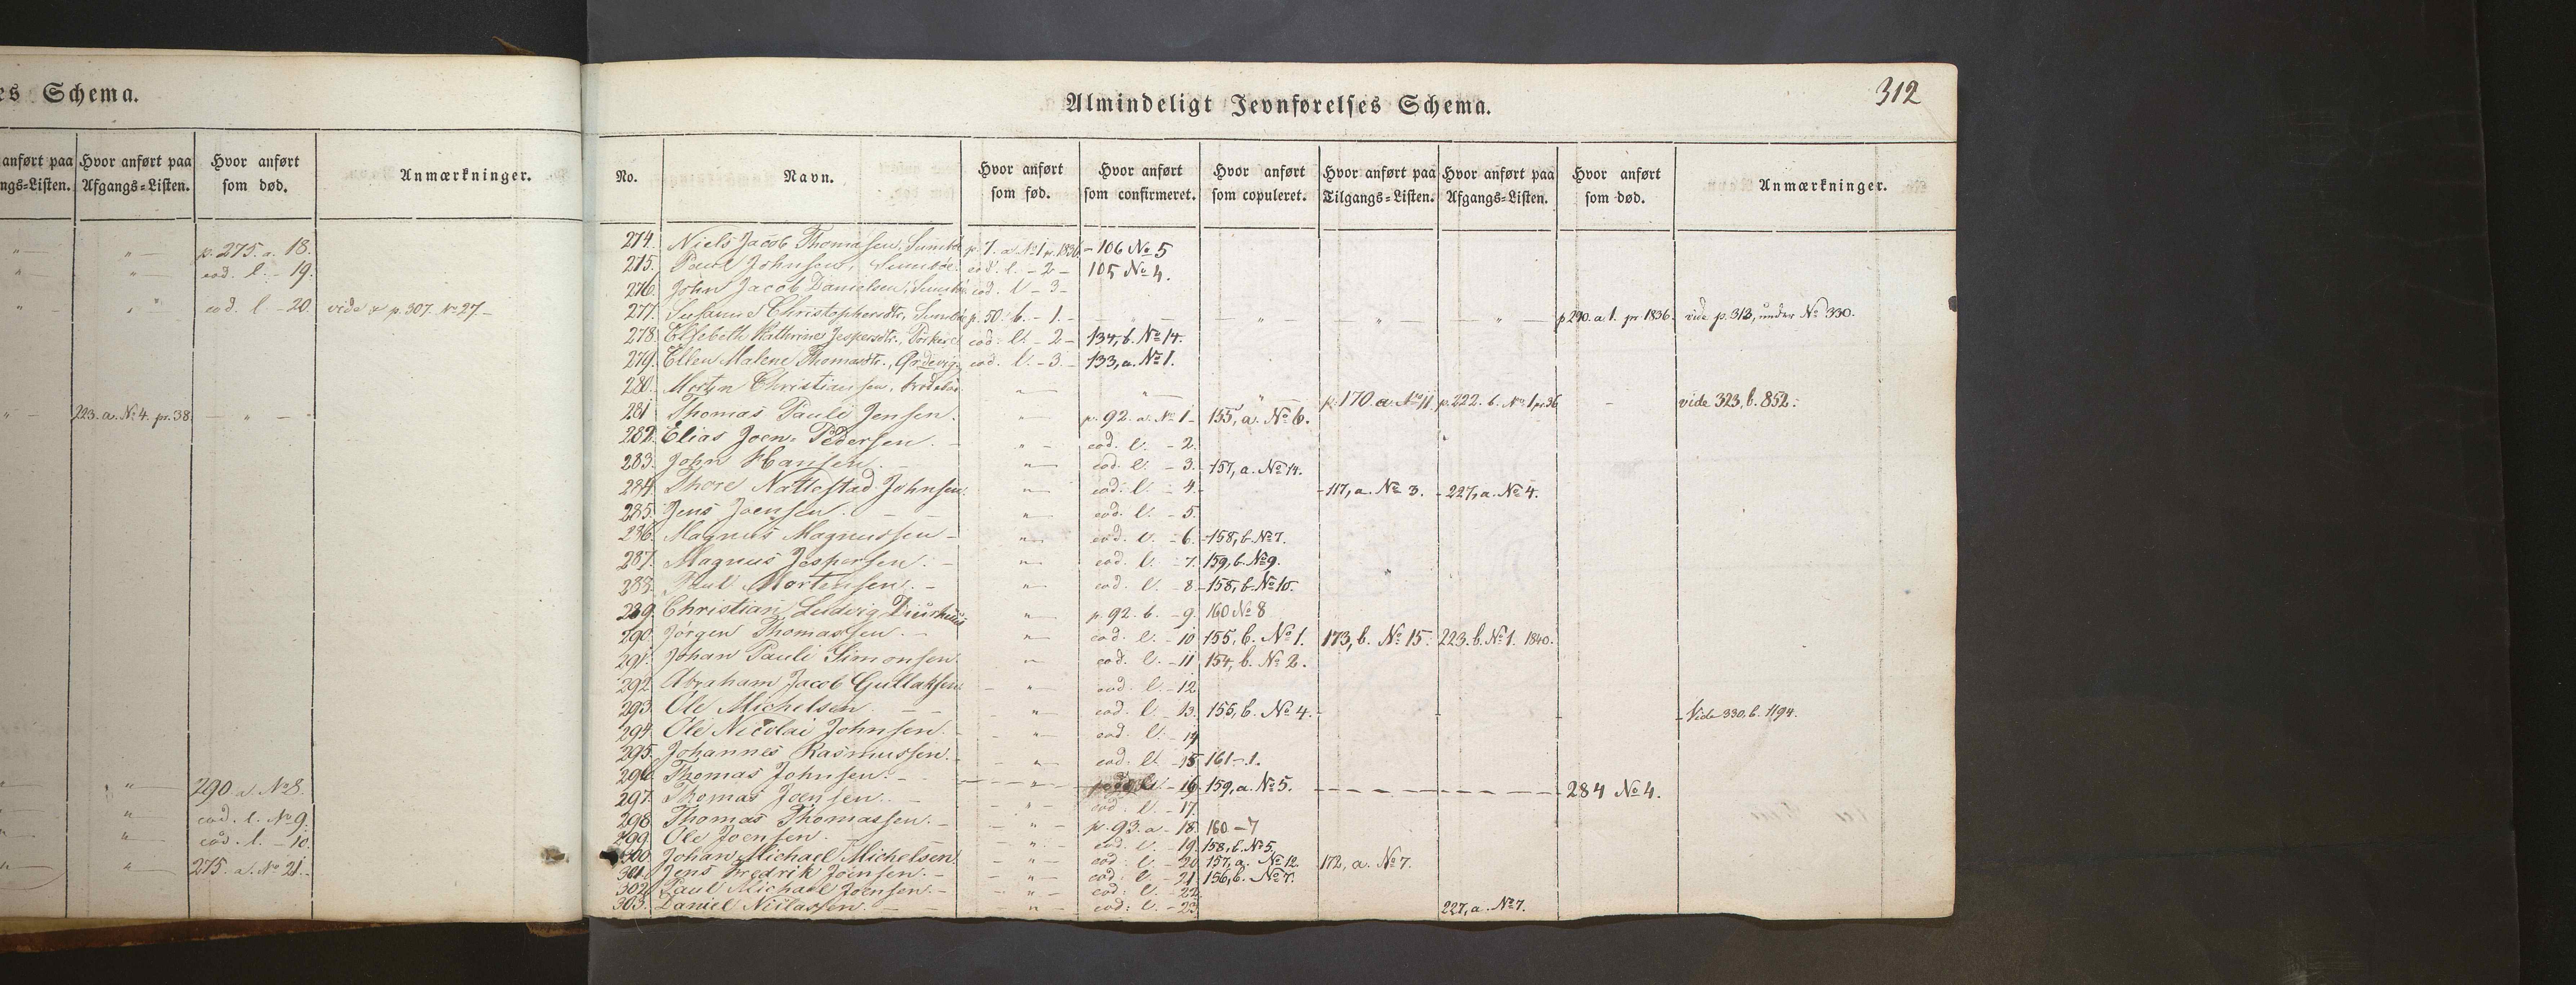 es Schema.
anført paa Hvor anført paa Hvor anført Anmærkninger.
ngs=Listen. Afgangs=Listen. som død.
" " p. 275. a. 18.
" " eod. l. - 19.
" " eod. l. - 20. vide p. 307. No 27.
" 223. a. No 4. pr. 38. "
" 290 a. No 8.
" eod. l. No 9.
" eod. l. - 10.
" 275. a. No 21.
312
Almindeligt Jevnførelses Schema.
No. Navn. Hvor anført som fød. Hvor anført som confirmeret. Hvor anført som copuleret. Hvor anført paa Tilgangs=Listen. Hvor anført paa Afgangs=Listen. Hvor anført som død. Anmærkninger.
274. Niels Jacob Thomassen, Sumbøe p. 7. a. No 1 pr. 1836. - 106 No 5
275. Poul Johnsen, Sumbøe. eod. l. - 2 - 105 No 4.
276. John Jacob Danielsen, Sumbøe eod. l. - 3 -
277. Susanne S Christophersdtr, Sumbøe p. 50. b. - 1. - " - " - " - " - p 290. a. 1. pr 1836. vide p. 313, under No 330.
278. Elsebeth Kathrine Jespersdtr., Porkere eod. l. - 2 - 134, b. No 14.
279. Ellen Malene Thomasdtr., Ørdevig eod. l. - 3. - 133, a. No 1.
280. Morten Christiansen, " " " p. 170. a. No 11. p. 222. b. No 1 pr. 36 - vide 323, b. 852.
281. Thomas Pauli Jensen. " p. 92. a. No 1 - 155, a. No 6.
282. Elias Joen Pedersen. " eod. l. - 2.
283. John Hansen. " eod. l. - 3. 157, a. No 14.
284. Thore Nattestad Johnsen. " eod. l. - 4. - 117, a. No 3. - 227, a. No 4.
285. Jens Joensen. " eod. l. - 5.
286. Magnus Magnussen - " eod. l. - 6. - 158, b. No 7.
287. Magnus Jespersen. - " eod. l. - 7. 159, b. No 9.
288. Poul Mortensen. - " eod. l. - 8. - 158, b. No 10.
289. Christian Ludvig Diurhuus " p. 92. b. - 9. 160 No 8
290. Jørgen Thomassen. - " eod. l. - 10 155, b. No 1. 173, b. No 15. 223. b. No 1. 1840.
291. Johan Pauli Simonsen. " eod. l. - 11 154, b. No 2.
292. Abraham Jacob Gullaksen. - " eod. l. - 12
293. Ole Michelsen. - " eod. l. - 13. 155, b. No 4. - Vide 330, b. 1194.
294. Ole Nicolai Johnsen. - " eod. l. - 14
295. Johannes Rasmussen. - " eod. l. - 15 161 - 1.
296. Thomas Johnsen. - " - 16 159, a. No 5. - 284 No 4.
297. Thomas Joensen. - " eod. l. - 17.
298. Thomas Thomassen. - " p. 93. a. - 18. 160 - 7
299. Ole Joensen. - " eod. l. - 19. 158, b. No 5.
300. Johan Michael Michelsen. - " eod. l. - 20 157, a. No 12. 172, a. No 7.
301. Jens Fredrik Joensen. - " eod. l. - 21 156, b. No 7.
302. Paul Michael Joensen. - " eod. l. - 22.
303. Daniel Niclassen. - " eod. l. - 23. 227, a. No 7.